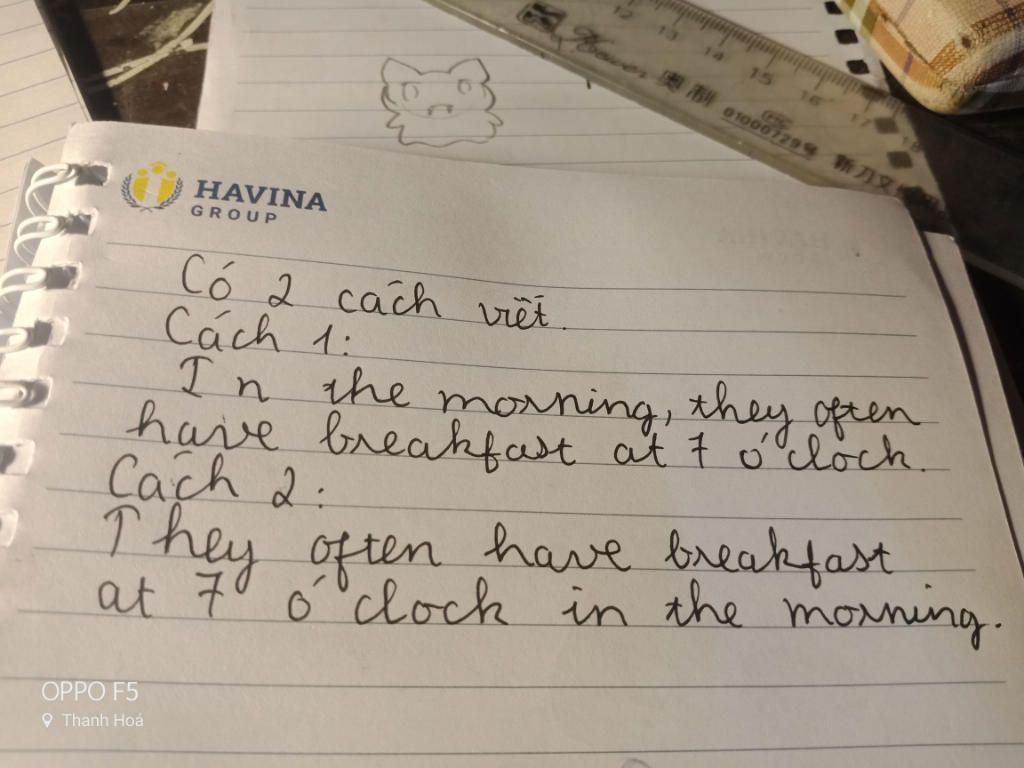 12 13 14 15 16 17 18
010007298
HAVINA
GROUP
Có 2 cách viết.
Cách 1:
In the morning, they often
have breakfast at 7 o'clock.
Cách 2:
They often have breakfast
at 7 o'clock in the morning.
OPPO F5
Thanh Hoá